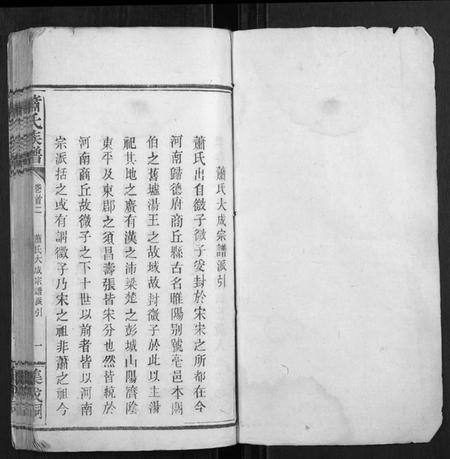 蕭氏大成宗譜派引
蕭氏出自微子微子受封於宋宋之所都在今
河南歸德府商丘縣古名睢陽别號亳邑本閼
伯之舊墟湯王之故域故封微子於此以主湯
祀其地之廣有漢之沛梁楚之彭城山陽濟陰
東平及東郡之須昌壽張皆宋分也然皆統於
河南商丘故微子之下十世以前者皆以河南
宗派括之或有謂微子乃宋之祖非蕭之祖今
蕭氏族譜
卷首二
蕭氏大成宗譜派引
一
集成祠